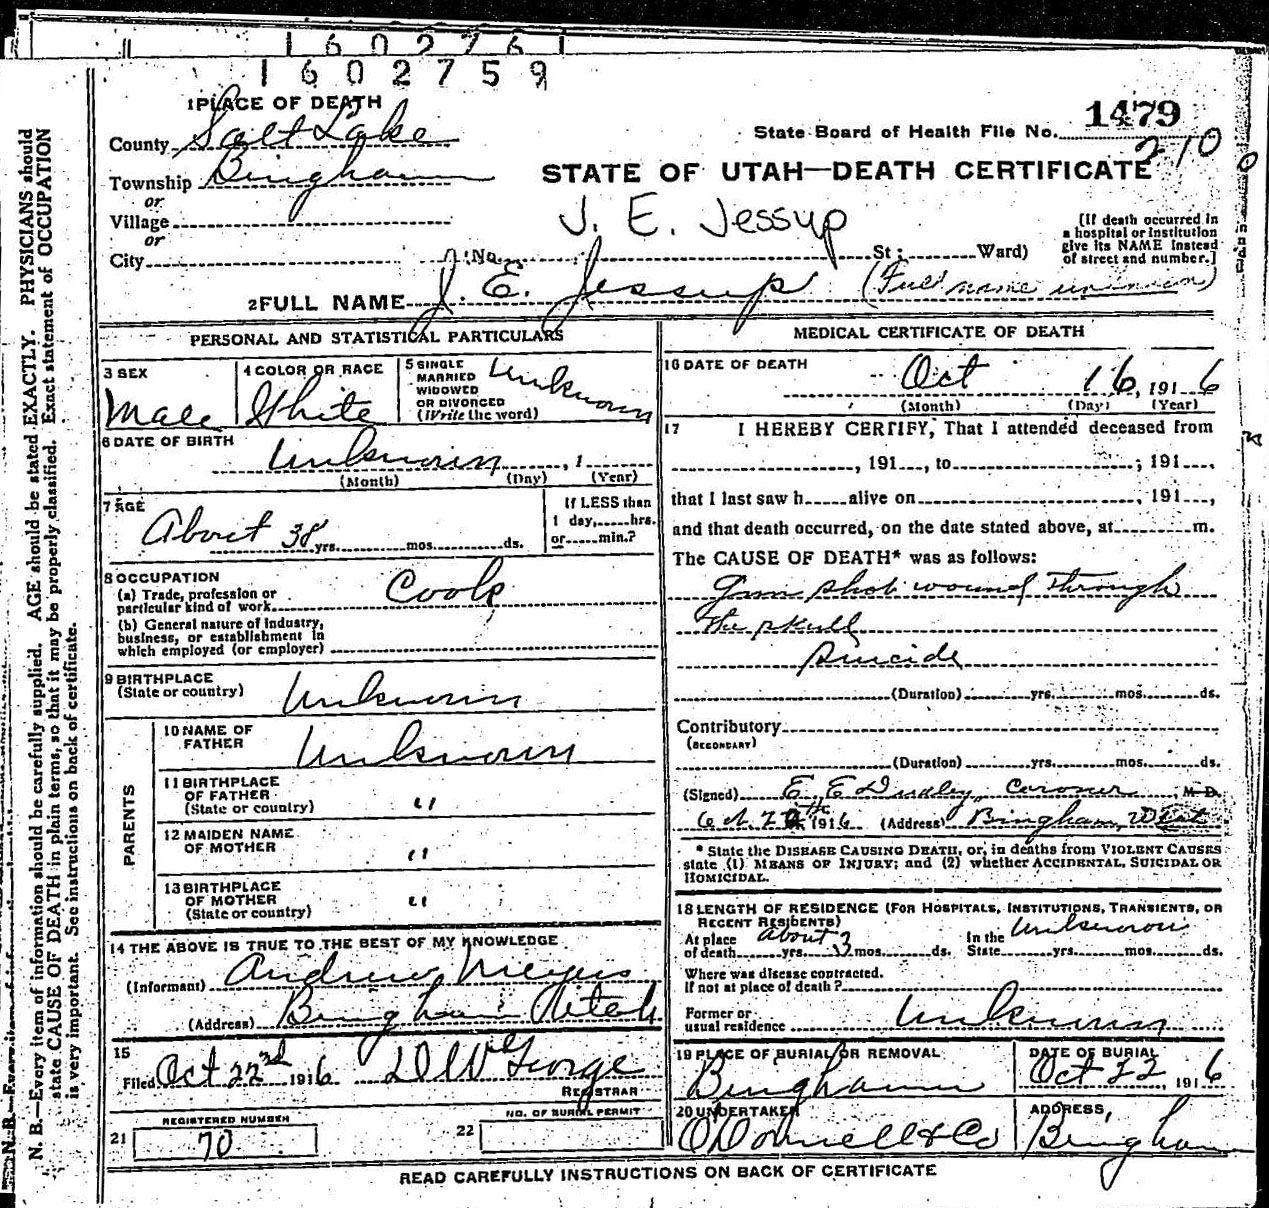 1602761
1602759
1 PLACE OF DEATH
County Salt Lake
Township Bingham
or
Village
or
City
State Board of Health File No. 1479
210
STATE OF UTAH—DEATH CERTIFICATE
J. E. Jessup
No. St; Ward)
(If death occurred in
a hospital or institution
give its NAME instead
of street and number.]
2 FULL NAME J. E. Jessup (Full name unknown)
PERSONAL AND STATISTICAL PARTICULARS
3 SEX
Male
4 COLOR OR RACE
White
5 SINGLE
MARRIED
WIDOWED
OR DIVORCED
(Write the word)
Unknown
6 DATE OF BIRTH
Unknown , 1
(Month) (Day) (Year)
7 AGE
About 38 yrs. mos. ds.
If LESS than
1 day, hrs.
or min.?
8 OCCUPATION
(a) Trade, profession or
particular kind of work Cook
(b) General nature of industry,
business, or establishment in
which employed (or employer)
9 BIRTHPLACE
(State or country) Unknown
PARENTS
10 NAME OF
FATHER Unknown
11 BIRTHPLACE
OF FATHER
(State or country) "
12 MAIDEN NAME
OF MOTHER "
13 BIRTHPLACE
OF MOTHER
(State or country) "
14 THE ABOVE IS TRUE TO THE BEST OF MY KNOWLEDGE
(Informant) Andrew Meyers
(Address) Bingham Utah
15
Filed Oct 22nd 1916
REGISTRAR
REGISTERED NUMBER
21 70
NO. OF BURIAL PERMIT
22
MEDICAL CERTIFICATE OF DEATH
16 DATE OF DEATH
Oct 16, 1916
(Month) (Day) (Year)
17 I HEREBY CERTIFY, That I attended deceased from
, 191 , to ; 191 ,
that I last saw h alive on , 191 ,
and that death occurred, on the date stated above, at m.
The CAUSE OF DEATH* was as follows:
Gun shot wound through
the skull
Suicide
(Duration) yrs. mos. ds.
Contributory
(SECONDARY)
(Duration) yrs. mos. ds.
(Signed) E. E. Dudley, Coroner M.D.
1916 (Address) Bingham, Utah
* State the DISEASE CAUSING DEATH, or, in deaths from VIOLENT CAUSES
state (1) MEANS OF INJURY; and (2) whether ACCIDENTAL, SUICIDAL OR
HOMICIDAL.
18 LENGTH OF RESIDENCE (FOR HOSPITALS, INSTITUTIONS, TRANSIENTS, OR
RECENT RESIDENTS)
At place
of death yrs. About 3 mos. ds.
In the
State Unknown yrs. mos. ds.
Where was disease contracted.
If not at place of death?
Former or
usual residence Unknown
19 PLACE OF BURIAL OR REMOVAL
Bingham
DATE OF BURIAL
Oct 22, 1916
20 UNDERTAKER
O'Donnell & Co
ADDRESS,
Bingham
READ CAREFULLY INSTRUCTIONS ON BACK OF CERTIFICATE
N. B.—Every item of information should be carefully supplied. AGE should be stated EXACTLY. PHYSICIANS should
state CAUSE OF DEATH in plain terms, so that it may be properly classified. Exact statement of OCCUPATION
is very important. See instructions on back of certificate.